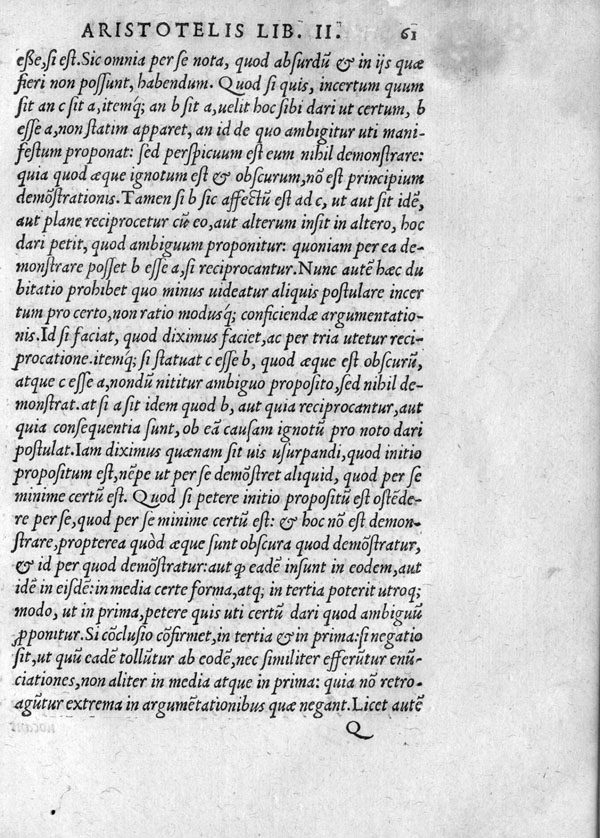 ARISTOTELIS LIB. II. 61
eße, si est. Sic omnia per se nota, quod absurdū & in ijs quæ
fieri non possunt, habendum. Quod si quis, incertum quum
sit an c sit a, itemq́; an b sit a, uelit hoc sibi dari ut certum, b
esse a, non statim apparet, an id de quo ambigitur uti mani-
festum proponat: sed perspicuum est eum nihil demonstrare:
quia quod æque ignotum est & obscurum, nō est principium
demōstrationis. Tamen si b sic affectū est ad c, ut aut sit idē,
aut plane reciprocetur cū eo, aut alterum insit in altero, hoc
dari petit, quod ambiguum proponitur: quoniam per ea de-
monstrare posset b esse a, si reciprocantur. Nunc autē hæc du
bitatio prohibet quo minus uideatur aliquis postulare incer
tum pro certo, non ratio modusq́; conficiendæ argumentatio-
nis. Id si faciat, quod diximus faciet, ac per tria utetur reci-
procatione. itemq́; si statuat c esse b, quod æque est obscurū,
atque c esse a, nondū nititur ambiguo proposito, sed nihil de-
monstrat. at si a sit idem quod b, aut quia reciprocantur, aut
quia consequentia sunt, ob eā causam ignotū pro noto dari
postulat. Iam diximus quænam sit uis usurpandi, quod initio
propositum est, nēpe ut per se demōstret aliquid, quod per se
minime certū est. Quod si petere initio propositū est ostēde-
re per se, quod per se minime certū est: & hoc nō est demon-
strare, propterea quòd æque sunt obscura quod demōstratur,
& id per quod demōstratur: aut ꝙ eadē insunt in eodem, aut
idē in eisdē: in media certe forma, atq; in tertia poterit utroq;
modo, ut in prima, petere quis uti certū dari quod ambiguū
ꝓponitur. Si cōclusio cōfirmet, in tertia & in prima: si negatio
sit, ut quū eadē tollūtur ab eodē, nec similiter efferūtur enū-
ciationes, non aliter in media atque in prima: quia nō retro-
agūtur extrema in argumētationibus quæ negant. Licet autē
Q